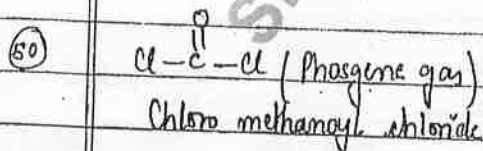 50
O
||
Cl-C-Cl (Phosgene gas)
Chloro methanoyl chloride